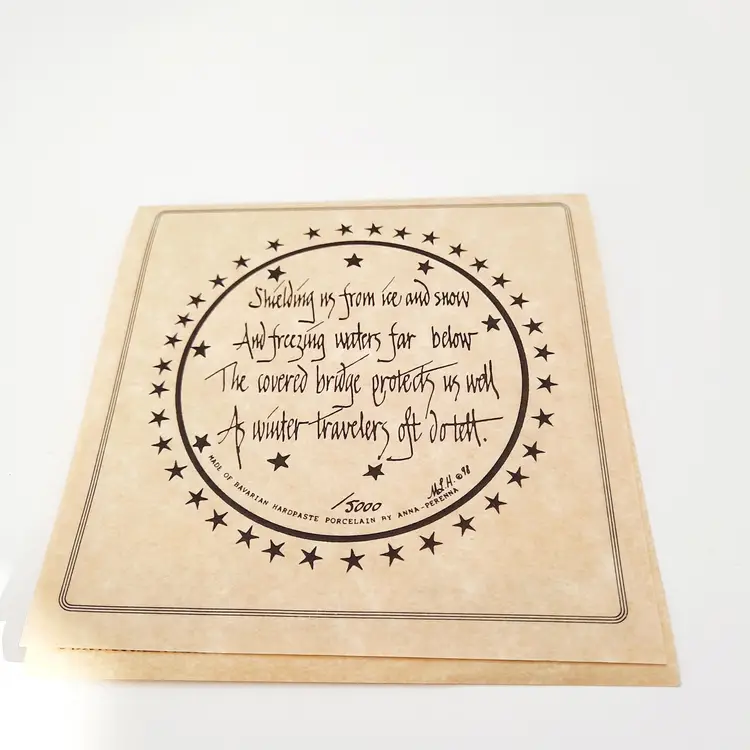 Shielding us from ice and snow
And freezing waters far below
The covered bridge protects us well
As winter travelers oft do tell.
/5000
M.L.H. ©98
MADE OF BAVARIAN HARDPASTE PORCELAIN BY ANNA-PERENNA